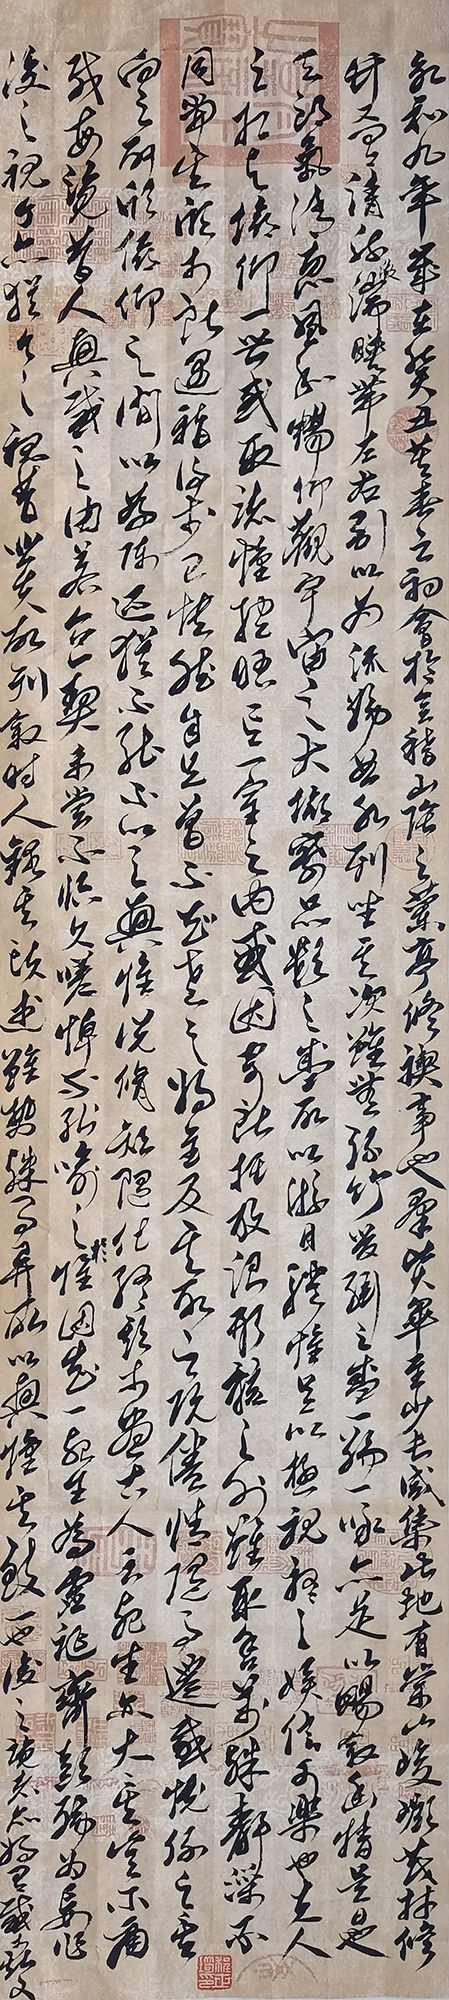 永和九年歲在癸丑暮春之初會於會稽山陰之蘭亭脩禊事也群賢畢至少長咸集此地有崇山峻嶺茂林脩
竹又有清流激湍暎帶左右引以為流觴曲水列坐其次雖無絲竹管弦之盛一觴一詠亦足以暢敘幽情是日也
天朗氣清惠風和暢仰觀宇宙之大俯察品類之盛所以遊目騁懷足以極視聽之娛信可樂也夫人
之相與俯仰一世或取諸懷抱悟言一室之內或因寄所託放浪形骸之外雖取舍萬殊靜躁不
同當其欣於所遇暫得於己怏然自足曾不知老之將至及其所之既倦情隨事遷感慨係之矣
向之所欣俯仰之間以為陳迹猶不能不以之興懷況脩短隨化終期於盡古人云死生亦大矣豈不痛
哉每覽昔人興感之由若合一契未嘗不臨文嗟悼不能喻之於懷固知一死生為虛誕齊彭殤為妄作
後之視今亦猶今之視昔悲夫故列敘時人錄其所述雖世殊事異所以興懷其致一也後之覽者亦將有感於斯文